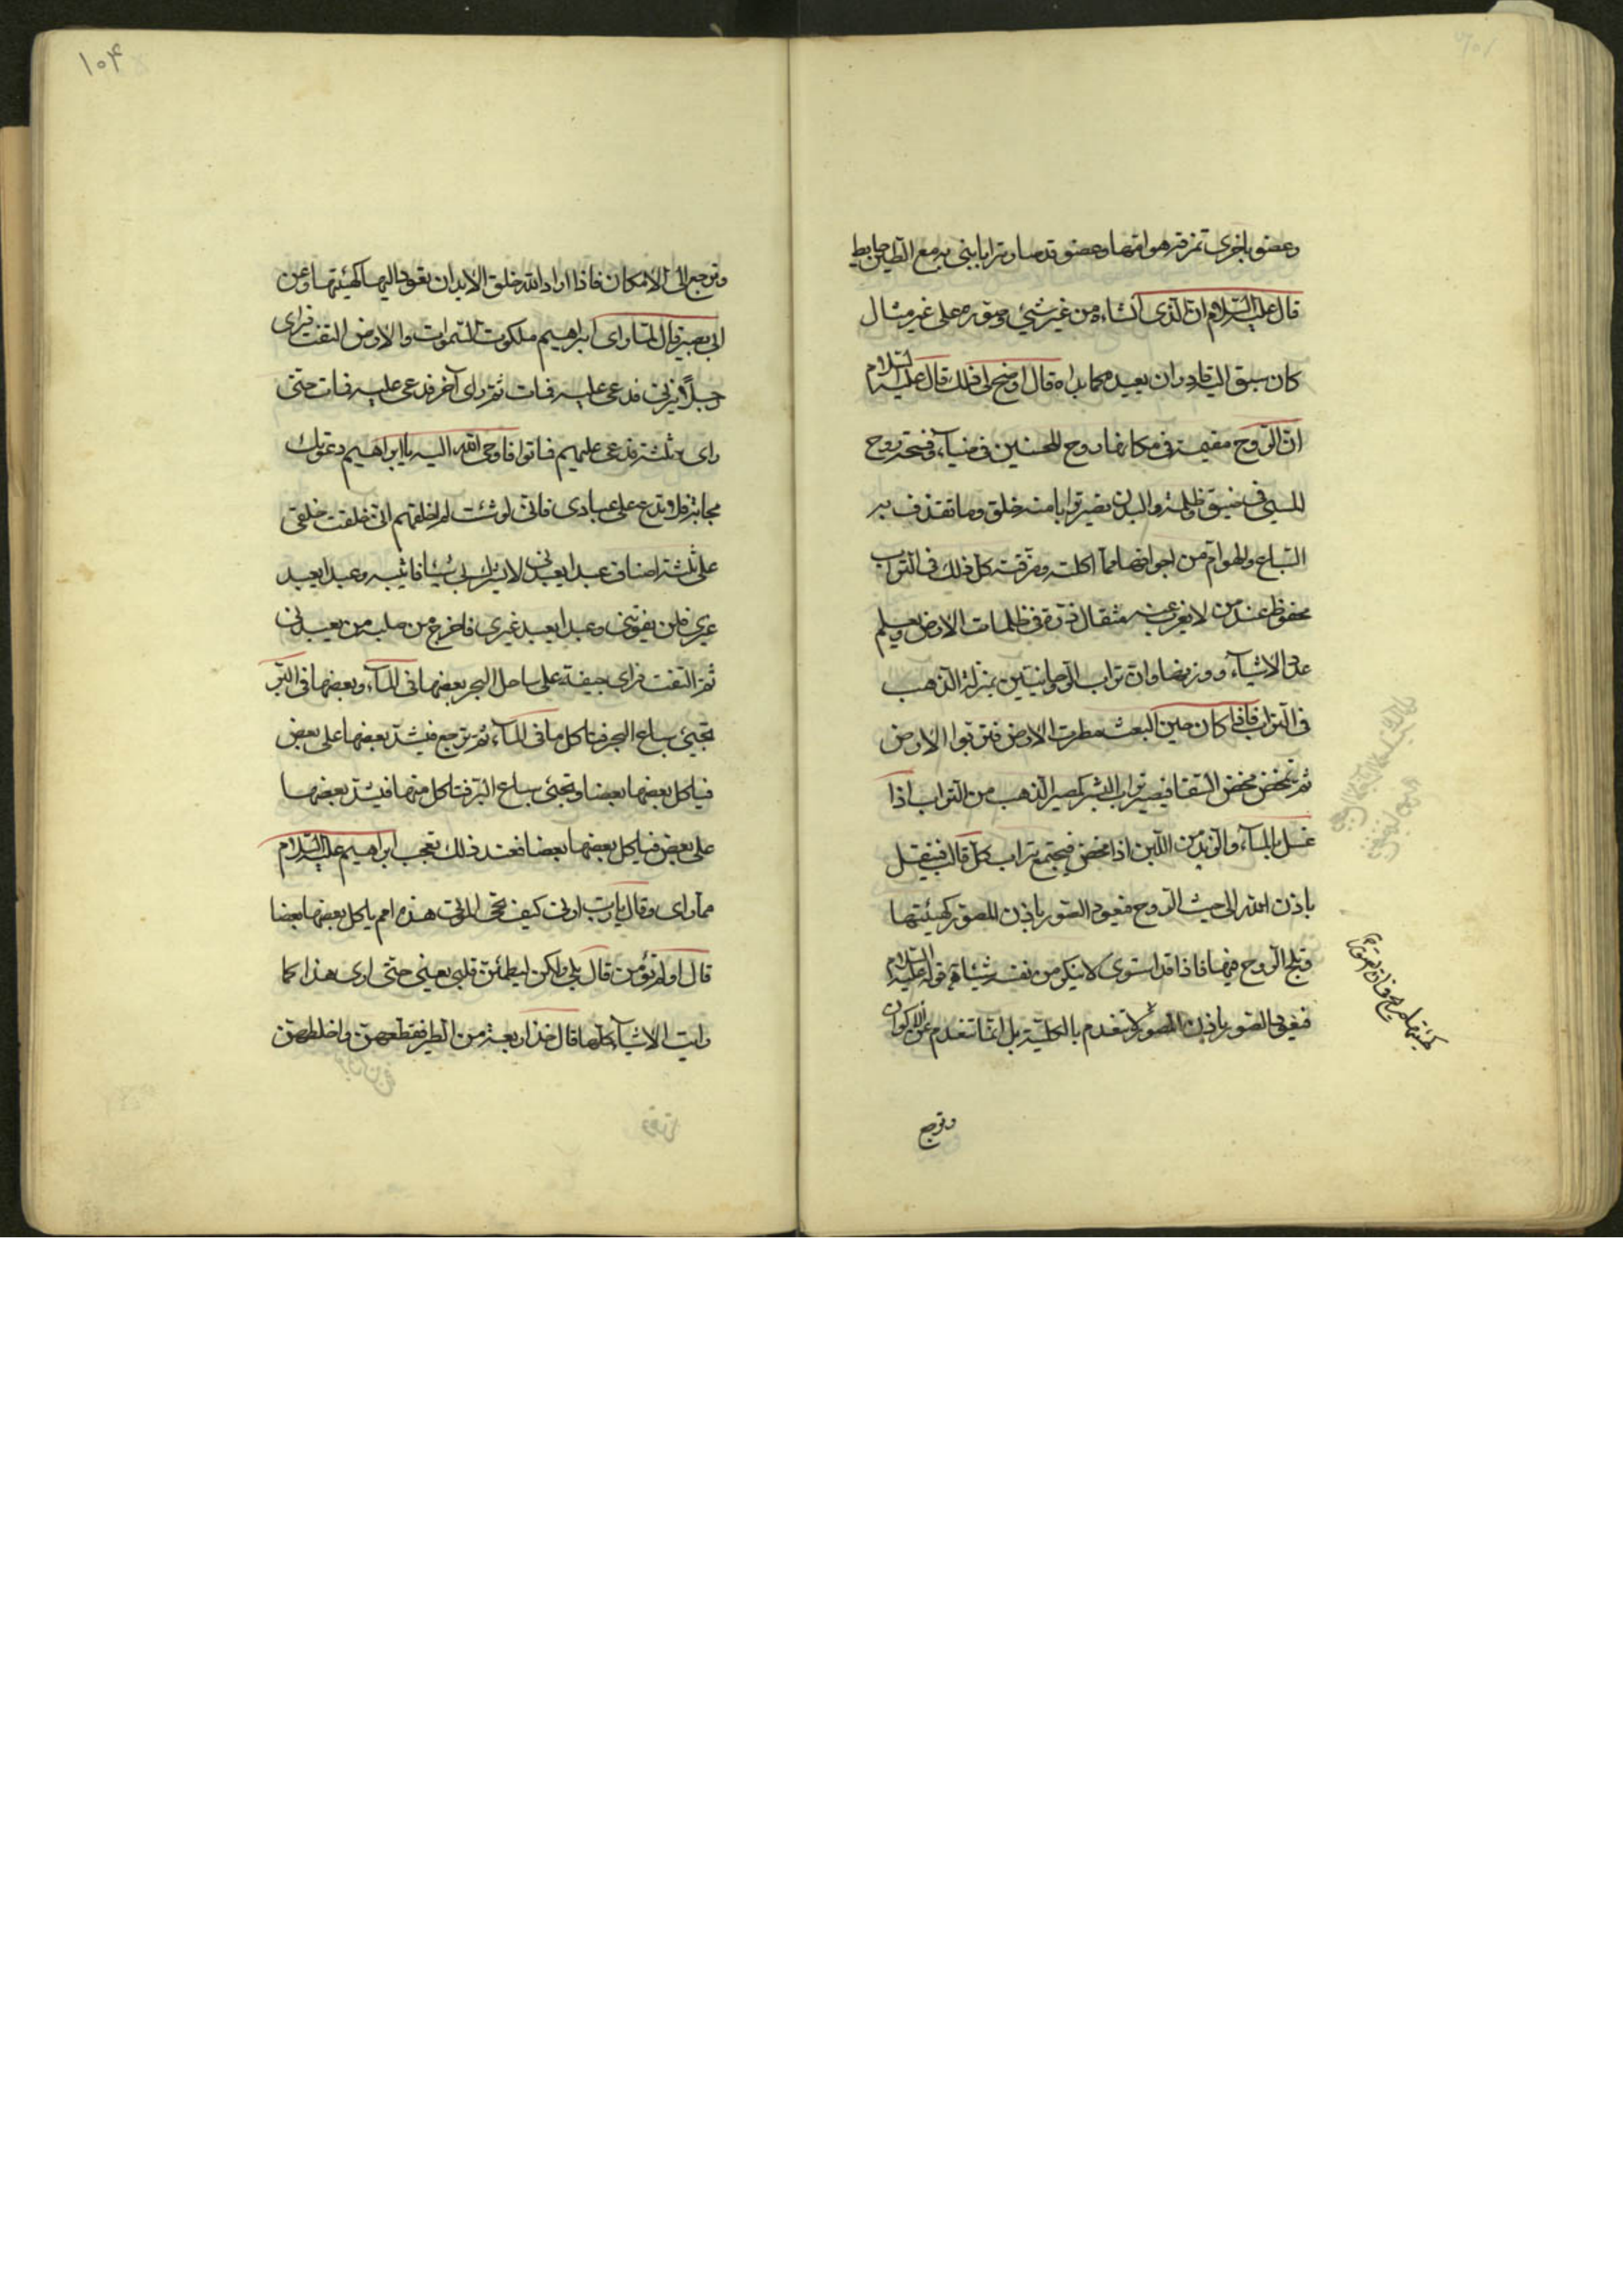 وعضو باخرى تمزقه هوامها وعضو قد صار ترابا بنى به مع الطين حايط
قال عليه السلام ان الذى انشاءه من غير شيئ وصوره على غير مثال
كان سبق اليه قادر ان يعيده كما بداه قال اوضح لى ذلك قال عليه السلام
ان الروح مقيمة فى مكانها روح المحسنين فى ضياء وفسحة وروح
المسيئ فى ضيق وظلمة والبدن يصير ترابا منه خلق وما تقذف به
السباع والهوام من اجوافها مما اكلته ومزقته كل ذلك فى التراب
محفوظ عند من لا يعزب عنه مثقال ذرة فى ظلمات الارض ويعلم
عدد الاشياء ووزنها وان تراب الروحانيين بمنزلة الذهب
فى التراب فاذا كان حين البعث مطرت الارض فتربوا الارض
ثم تمخض مخض السقا فيصير تراب البشر كمصير الذهب من التراب اذا
غسل بالماء والزبد من اللبن اذا مخض فيجتمع تراب كل قالب فينتقل
باذن الله الى حيث الروح فتعود الصور باذن المصور كهيئتها
وتلج الروح فيها فاذا قد استوى لا ينكر من نفسه شيئا قوله عليه السلام
فتعود الصور باذن المصور لا تنعدم بالكلية بل انما تنعدم عن الاكوان
وترجع
وترجع الى الامكان فاذا اراد الله خلق الابدان تعود اليها كهيئتها وعن
ابى بصير قال لما راى ابراهيم ملكوت السموات والارض التفت فراى
رجلا يزنى فدعى عليه فمات ثم راى آخر فدعى عليه فمات حتى
راى ثلثة فدعى عليهم فماتوا فاوحى الله اليه يا ابراهيم دعوتك
مجابة فلا تدع على عبادى فانى لو شئت لم اخلقهم انى خلقت خلقى
على ثلثة اصناف عبدا يعبدنى لا يشرك بى شيئا فاثيبه وعبدا يعبد
غيرى فلن يفوتنى وعبدا يعبد غيرى فاخرج من صلبه من يعبدنى
ثم التفت فراى جيفة على ساحل البحر بعضها فى الماء وبعضها فى البر
تجيئ سباع البحر فتاكل ما فى الماء ثم ترجع فيشد بعضها على بعض
فياكل بعضها بعضا وتجيئ سباع البر فتاكل منها فيشد بعضها
على بعض فياكل بعضها بعضا فعند ذلك تعجب ابراهيم عليه السلام
مما راى وقال يا رب ارنى كيف تحى الموتى هذه امم ياكل بعضها بعضا
قال اولم تؤمن قال بلى ولكن ليطمئن قلبى يعنى حتى ارى هذا كما
رايت الاشياء كلها قال خذ اربعة من الطير فقطعهن واخلطهن
١٠٤